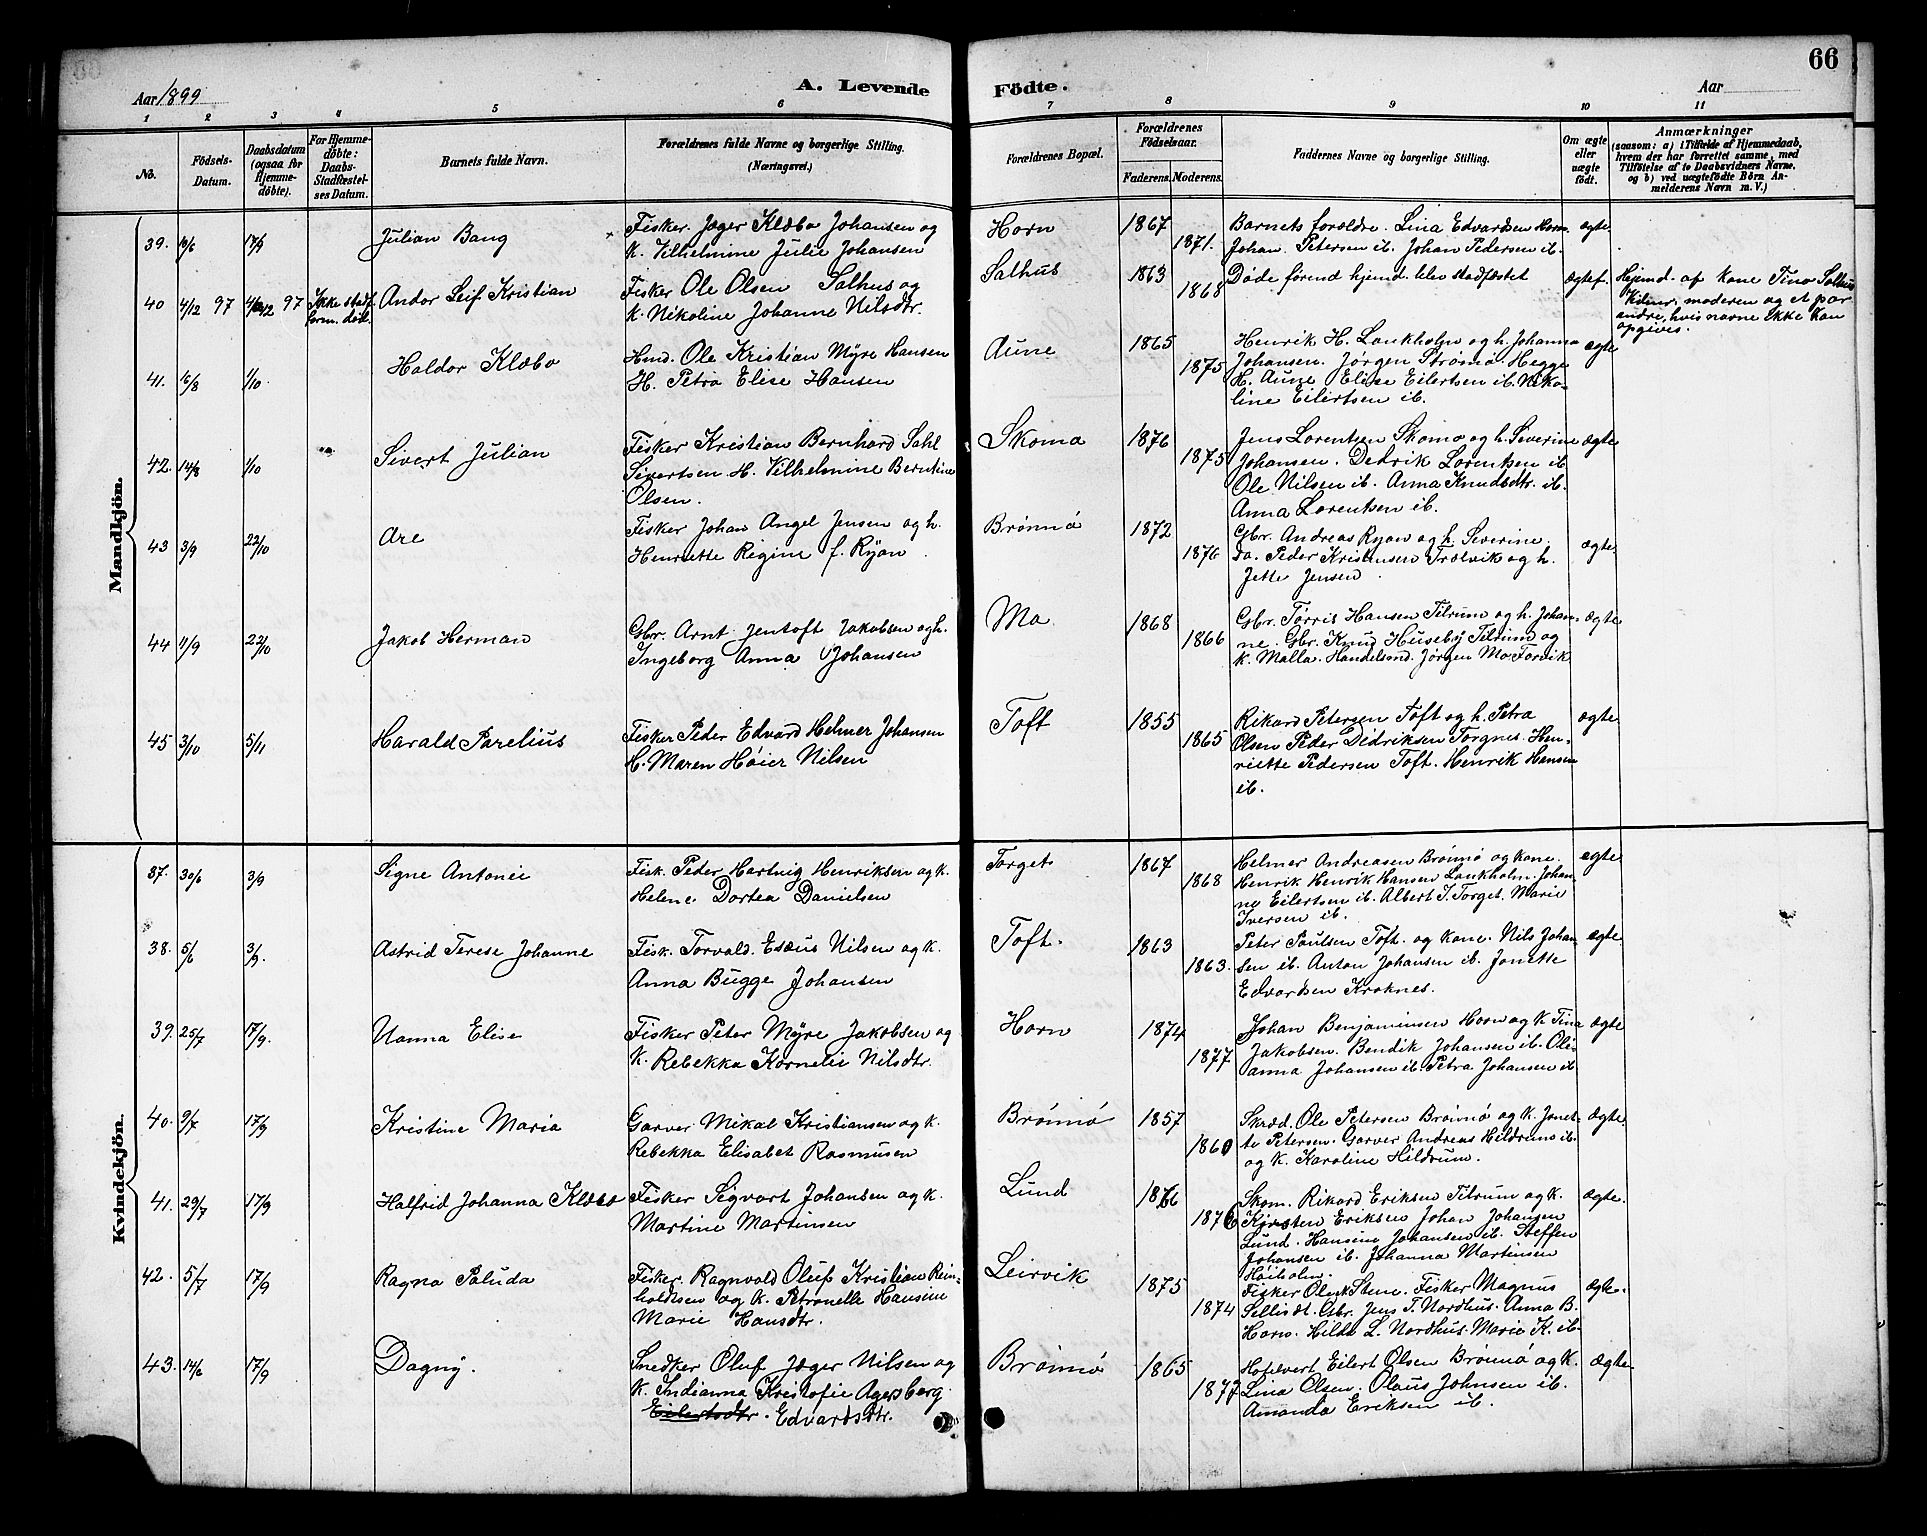 66
Aar 1899
A. Levende
Födte.
Aar
1 2 3 4 5 6 7 8 9 10 11
No.
Födsels-
Datum.
Daabsdatum
(ogsaa for
Hjemme-
döbte).
For Hjemme-
döbte:
Daabs-
Stadfæstel-
ses Datum.
Barnets fulde Navn.
Forældrenes fulde Navne og borgerlige Stilling.
(Næringsvei.)
Forældrenes Bopæl.
Forældrenes
Födselsaar.
Faderens. Moderens.
Faddernes Navne og borgerlige Stilling.
Om ægte
eller
uægte
födt.
Anmærkninger
(saasom: a) i Tilfælde af Hjemmedaab,
hvem der har forrettet samme, med
Tilföielse af to Daabsvidners Navne,
og b) ved uægtefödte Börn An-
melderens Navn m. V.)
Mandkjön.
39. 10/6 17/9
Julian Bang
Fisker Jæger Klæbo Johansen og
K. Vilhelmine Julie Johansen
Horn
1867
1871.
Barnets forældre. Lina Edvardsen Horn.
Johan Petersen ib. Johan Pedersen ib.
ægte
40 4/12 97 4/12 97
Ikke stadf.
form. död.
Andor Leif Kristian
Fisker Ole Olsen Salhus og
K. Nikoline Johanne Nilsdtr.
Salhus
1863
1868
Døde forend hjemd. blev stadfæstet
ægtef.
Hejemd. af kone Tina Salhus
Vidner, moderen og et par
andre, hvis navne ikke kan
opgives.
41. 16/8 1/10
Haldor Klæbo
Hmd. Ole Kristian Myre Hansen
H. Petra Elise Hansen
Aune
1865
1875
Henrik H. Lankholm og h. Johanna
Johansen. Jørgen Strømø. Hegge
H. Aune Elise Eilertsen ib. Niko-
line Eilertsen ib.
ægte
42. 14/8 1/10
Sivert Julian
Fisker Kristian Bernhard Sahl
Sivertsen H. Vilhelmine Berntine
Olsen.
Skomo
1876
1875
Jens Lorentsen Skomo og h. Severine
Johansen. Dedrik Lorentsen ib
Ole Nilsen ib. Anna Knudsdtr. ib.
Anna Lorentsen ib.
ægte
43 3/9 22/10
Are
Fisker Johan Angel Jensen og h.
Henriette Regine f. Ryan
Brønnø
1872
1876
Gbr. Andreas Ryan og h. Severine.
do. Peder Kristensen Trælvik og h.
Jette Jensen
ægte.
44 11/9 22/10
Jakob Herman
Gbr. Arnt Jentoft Jakobsen og h.
Ingeborg Anna Johansen
Mo
1868
1866
Gbr. Tørris Hansen Tilrum og h. Johan-
ne. Gbr. Knud Huseby Tilrum og
K. Malla. Handelsmd. Jørgen Mo Torvik
ægte
45 3/10 5/11
Harald Parelius
Fisker Peder Edvard Helmer Johansen
H. Maren Høier Nilsen
Toft
1855
1865
Rikard Petersen Toft og h. Petra
Olsen Peder Didriksen Torgnes. Hen-
riette Pedersen Toft. Henrik Hansen
ib.
ægte
Kvindekjön.
37. 30/6 3/9
Signe Antonei
Fisk. Peder Hartvig Henriksen og K.
Helene Dortea Danielsen
Torget
1867
1868
Helmer Andreasen Brønnø og kone.
Henrik Henrik Hansen Lankholm. Johan-
ne Eilertsen ib. Albert J. Torget. Marie
Iversen ib.
ægte
38. 5/6 3/9.
Astrid Terese Johanne
Fisk. Torvald Esæus Nilsen og K.
Anna Bugge Johansen
Toft.
1863
1863.
Peter Poulsen Toft. og kone. Nils Johan-
sen ib. Anton Johansen ib. Jonette
Edvardsen Kroknes.
ægte
39. 25/7 17/9.
Nanna Elise
Fisker Peter Myre Jakobsen og
K. Rebekka Kornelie Nilsdtr.
Horn
1874
1877
Johan Benjaminsen Horn og K. Tina
Jakobsen. Bendik Johansen ib. Oli-
anna Johansen ib. Petra Johansen ib
ægte
40. 9/7 17/9
Kristine Maria
Garver Mikal Kristiansen og K.
Rebekka Elisabet Rasmusen
Brønnø
1857
1860
Skræd. Ole Petersen Brønnø og K. Jonet-
te Petersen. Garver Andreas Hildrum ib.
og K. Karoline Hildrum.
ægte.
41. 29/7 17/9
Halfrid Johanna Klæbo
Fisker Sigvart Johansen og K.
Martine Martinsen
Lund
1876
1876
Skom. Rikard Eriksen Tilrum og K.
Kirsten Eriksen Johan Johansen
Lund. Hansine Johansen ib. Steffen
Johansen ib. Johanna Martinsen
Høiholm.
ægte.
42. 5/7 17/9
Ragna Paluda
Fisker. Ragnvald Oluf Kristian Rein-
holdtsen og K. Petronelle Hansine
Marie Hansdtr.
Leirvik
1875
1874
Fisker Oluf Stene. Fisker Magnus
Sellisdt. Gbr. Jens T. Nordhus. Anna B.
Horn. Hilda L. Nordhus. Marie K. ib.
ægte.
43. 14/6 17/9
Dagny.
Snedker Oluf Jæger Nilsen og
K. Indianna Kristofie Agersberg
Eilertsdtr. Edvardsdtr.
Brønnø
1865
1877
Hotelvert Eilert Olsen Brønnø og K.
Lina Olsen. Olaus Johnsen ib.
Amanda Eriksen ib.
ægte